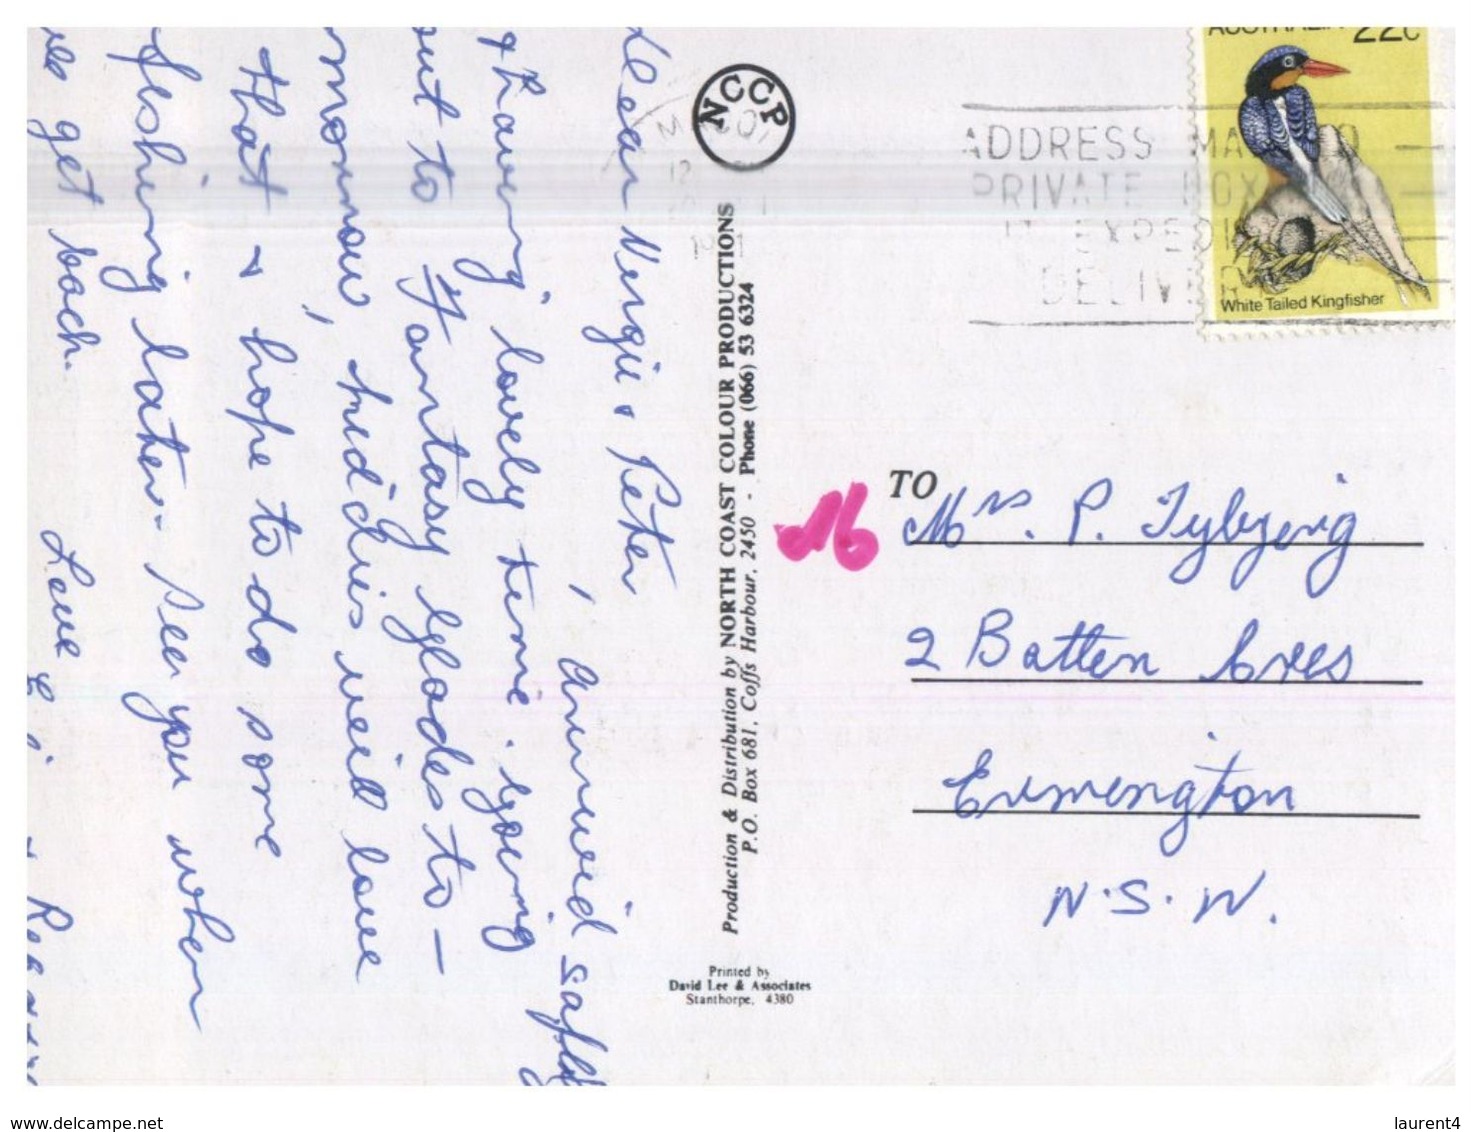 Dear Vergie & Peter
, arrived safely
& having lovely time. going
out to Fantasy Glades to-
morrow, kiddies will love
that & hope to do some
fishing later. See you when
we get back.
Love
NCCP
Production & Distribution by NORTH COAST COLOUR PRODUCTIONS
P.O. Box 681, Coffs Harbour, 2450 - Phone (066) 53 6324
Printed by
David Lee & Associates
Stanthorpe, 4380
AUSTRALIA 22c
White Tailed Kingfisher
ADDRESS MAIL TO
PRIVATE BOX
IT EXPEDI
DELIVERY
TO
Mrs. P.
2 Batten Cres
Ermington
N.S.W.
www.delcampe.net
laurent4